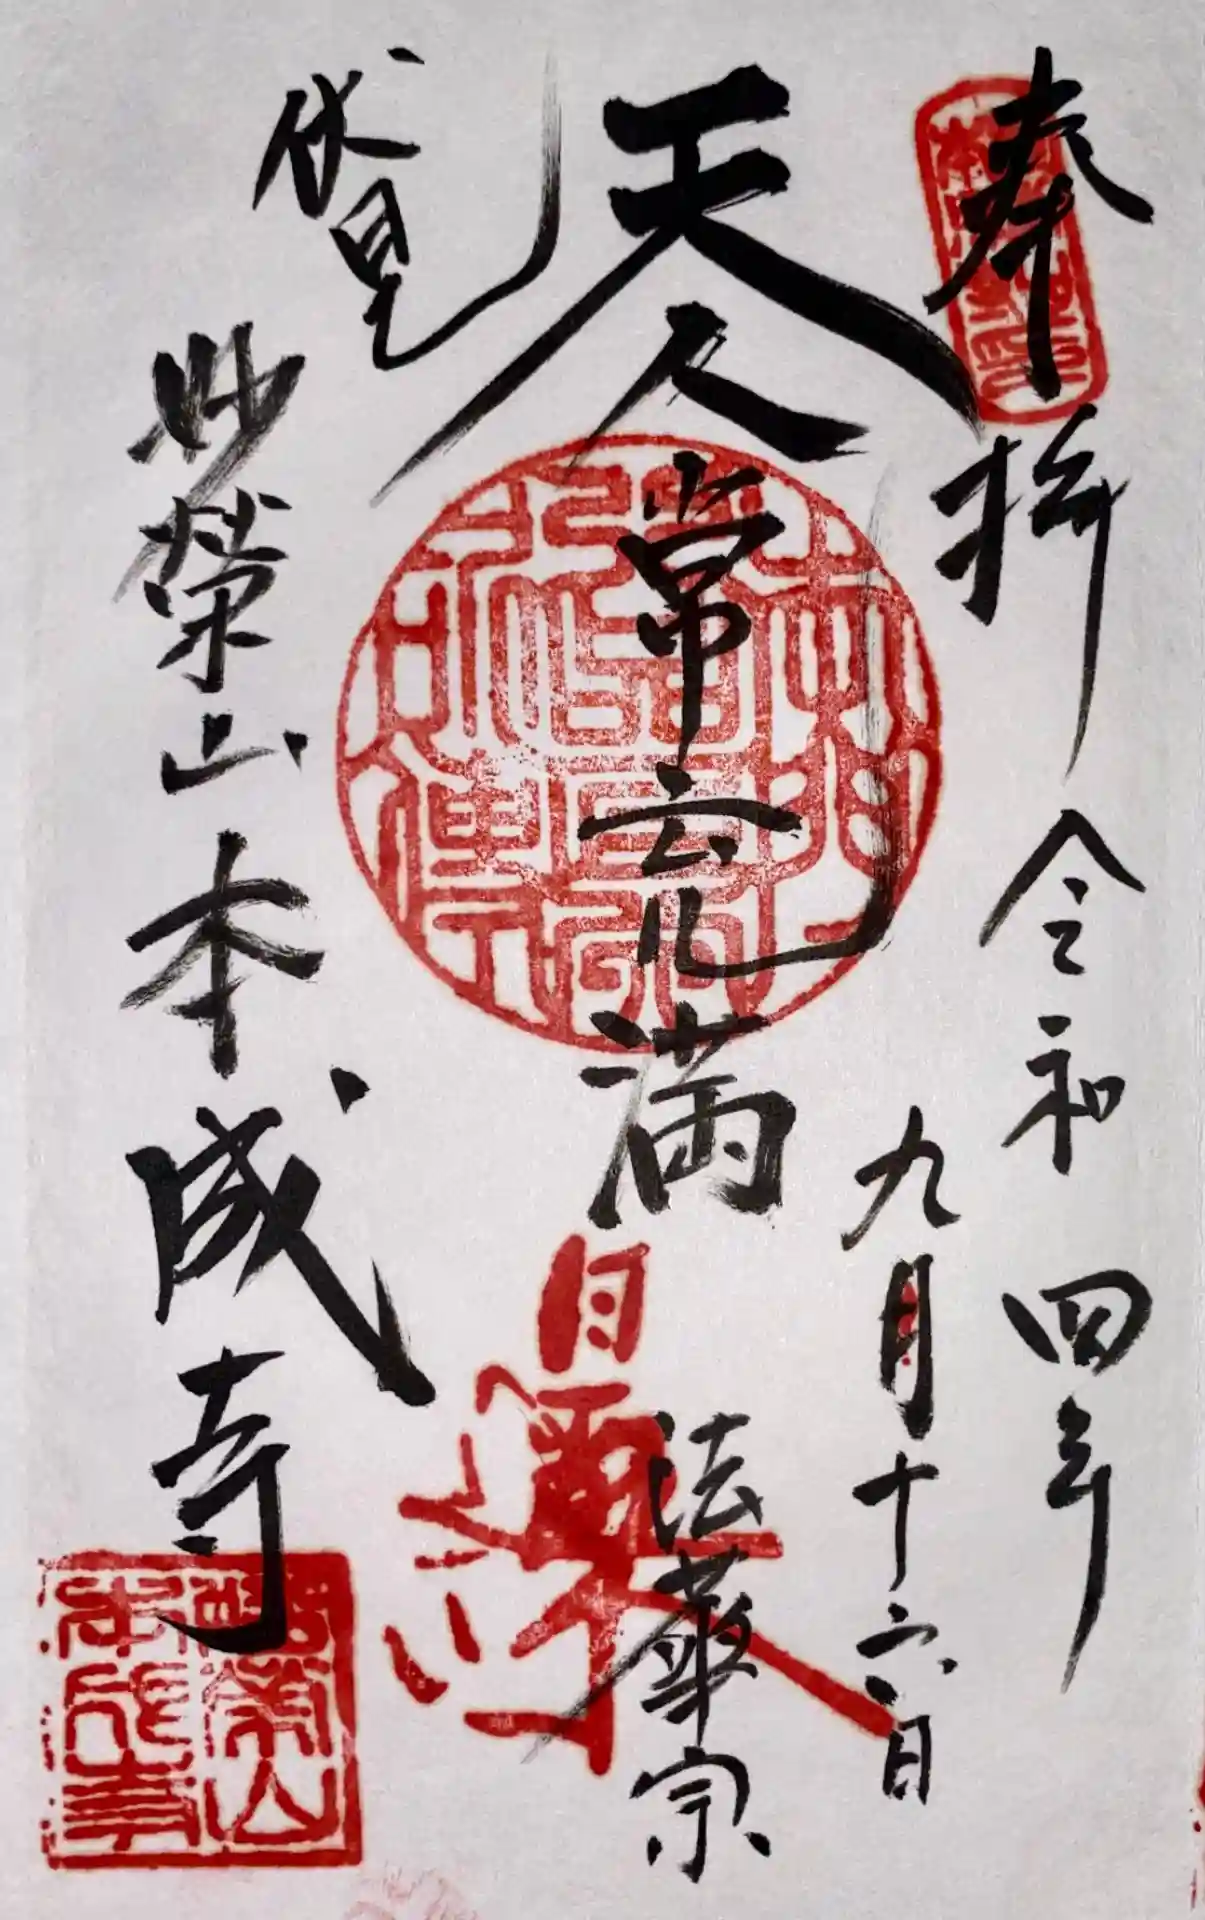 奉拝
令和四年
九月十六日
天人常充満
法華宗
伏見
妙榮山本成寺
妙榮山
本成寺